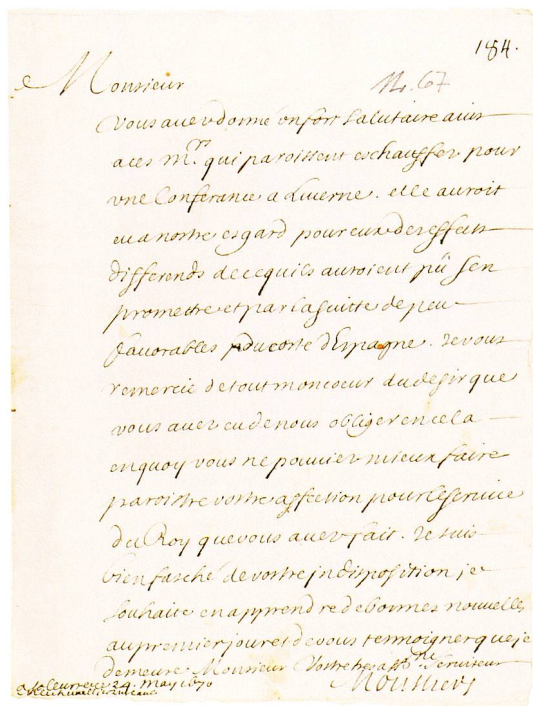 184.
N. 67
Monsieur
Vous avez donné un fort salutaire avis
a ces Mrs. qui paroissent eschauffez pour
une Conferance a Lucerne. elle auroit
eu a nostre esgard pour eux des effects
differends de ce quils auroient pû s'en
promettre et par la suitte de peu
favorables du coste d'Espagne. Je vous
remercie de tout mon coeur du desir que
vous avez eu de nous obliger en cela
en quoy vous ne pouviez mieux faire
paroistre vostre affection pour le service
du Roy que vous avez fait. Je suis
bien fasché de vostre indisposition je
souhaite en apprendre de bonnes nouvelles
au premier jour et de vous termoigner que je
demeure Monsieur Vostre tres aff.né Serviteur
a Soleurre ce 24. May 1670
Mouslier